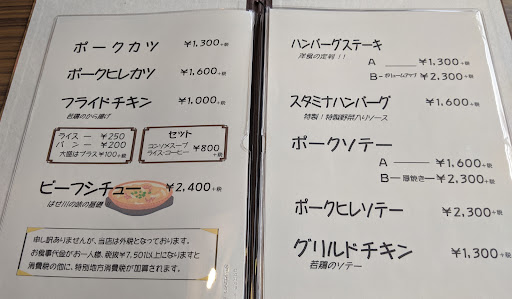 ポークカツ ¥1,300+税
ポークヒレカツ ¥1,600+税
フライドチキン ¥1,000+税
若鶏のから揚げ
ライス ー ¥250
パン ー ¥200
大盛はプラス¥100+税
セット
コンソメスープ
ライス・コーヒー ¥800+税
ビーフシチュー ¥2,400+税
はせ川の味の基礎
申し訳ありませんが、当店は外税となっております。
お食事代金がお一人様、税抜¥7,501以上になりますと
消費税の他に、特別地方消費税が加算されます。
ハンバーグステーキ
洋食の定刺!!
A ¥1,300+税
B-ボリュームアップ ¥2,300+税
スタミナハンバーグ ¥1,600+税
特製!特製野菜入りソース
ポークソテー
A ¥1,600+税
B-厚焼き ¥2,300+税
ポークヒレソテー ¥2,300+税
グリルドチキン ¥1,300+税
若鶏のソテー